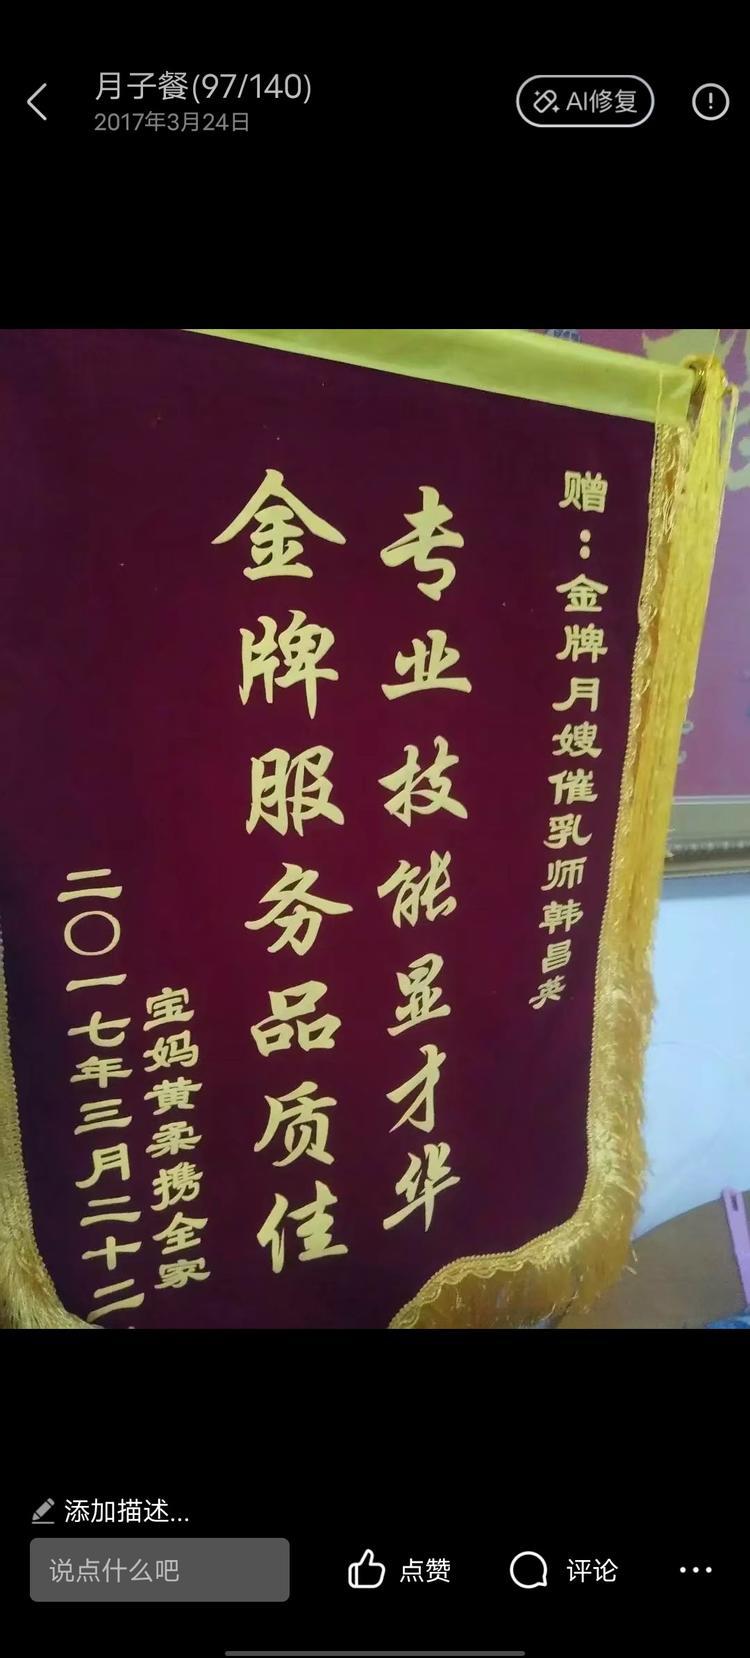 月子餐(97/140)
2017年3月24日
AI修复
赠：金牌月嫂催乳师韩昌英
专业技能显才华
金牌服务品质佳
宝妈黄柔携全家
二〇一七年三月二十二
添加描述...
说点什么吧
点赞
评论